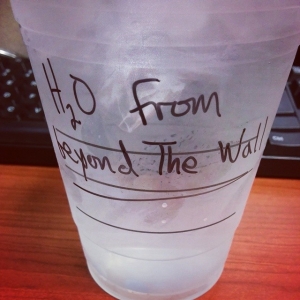 H₂O From
beyond The Wall